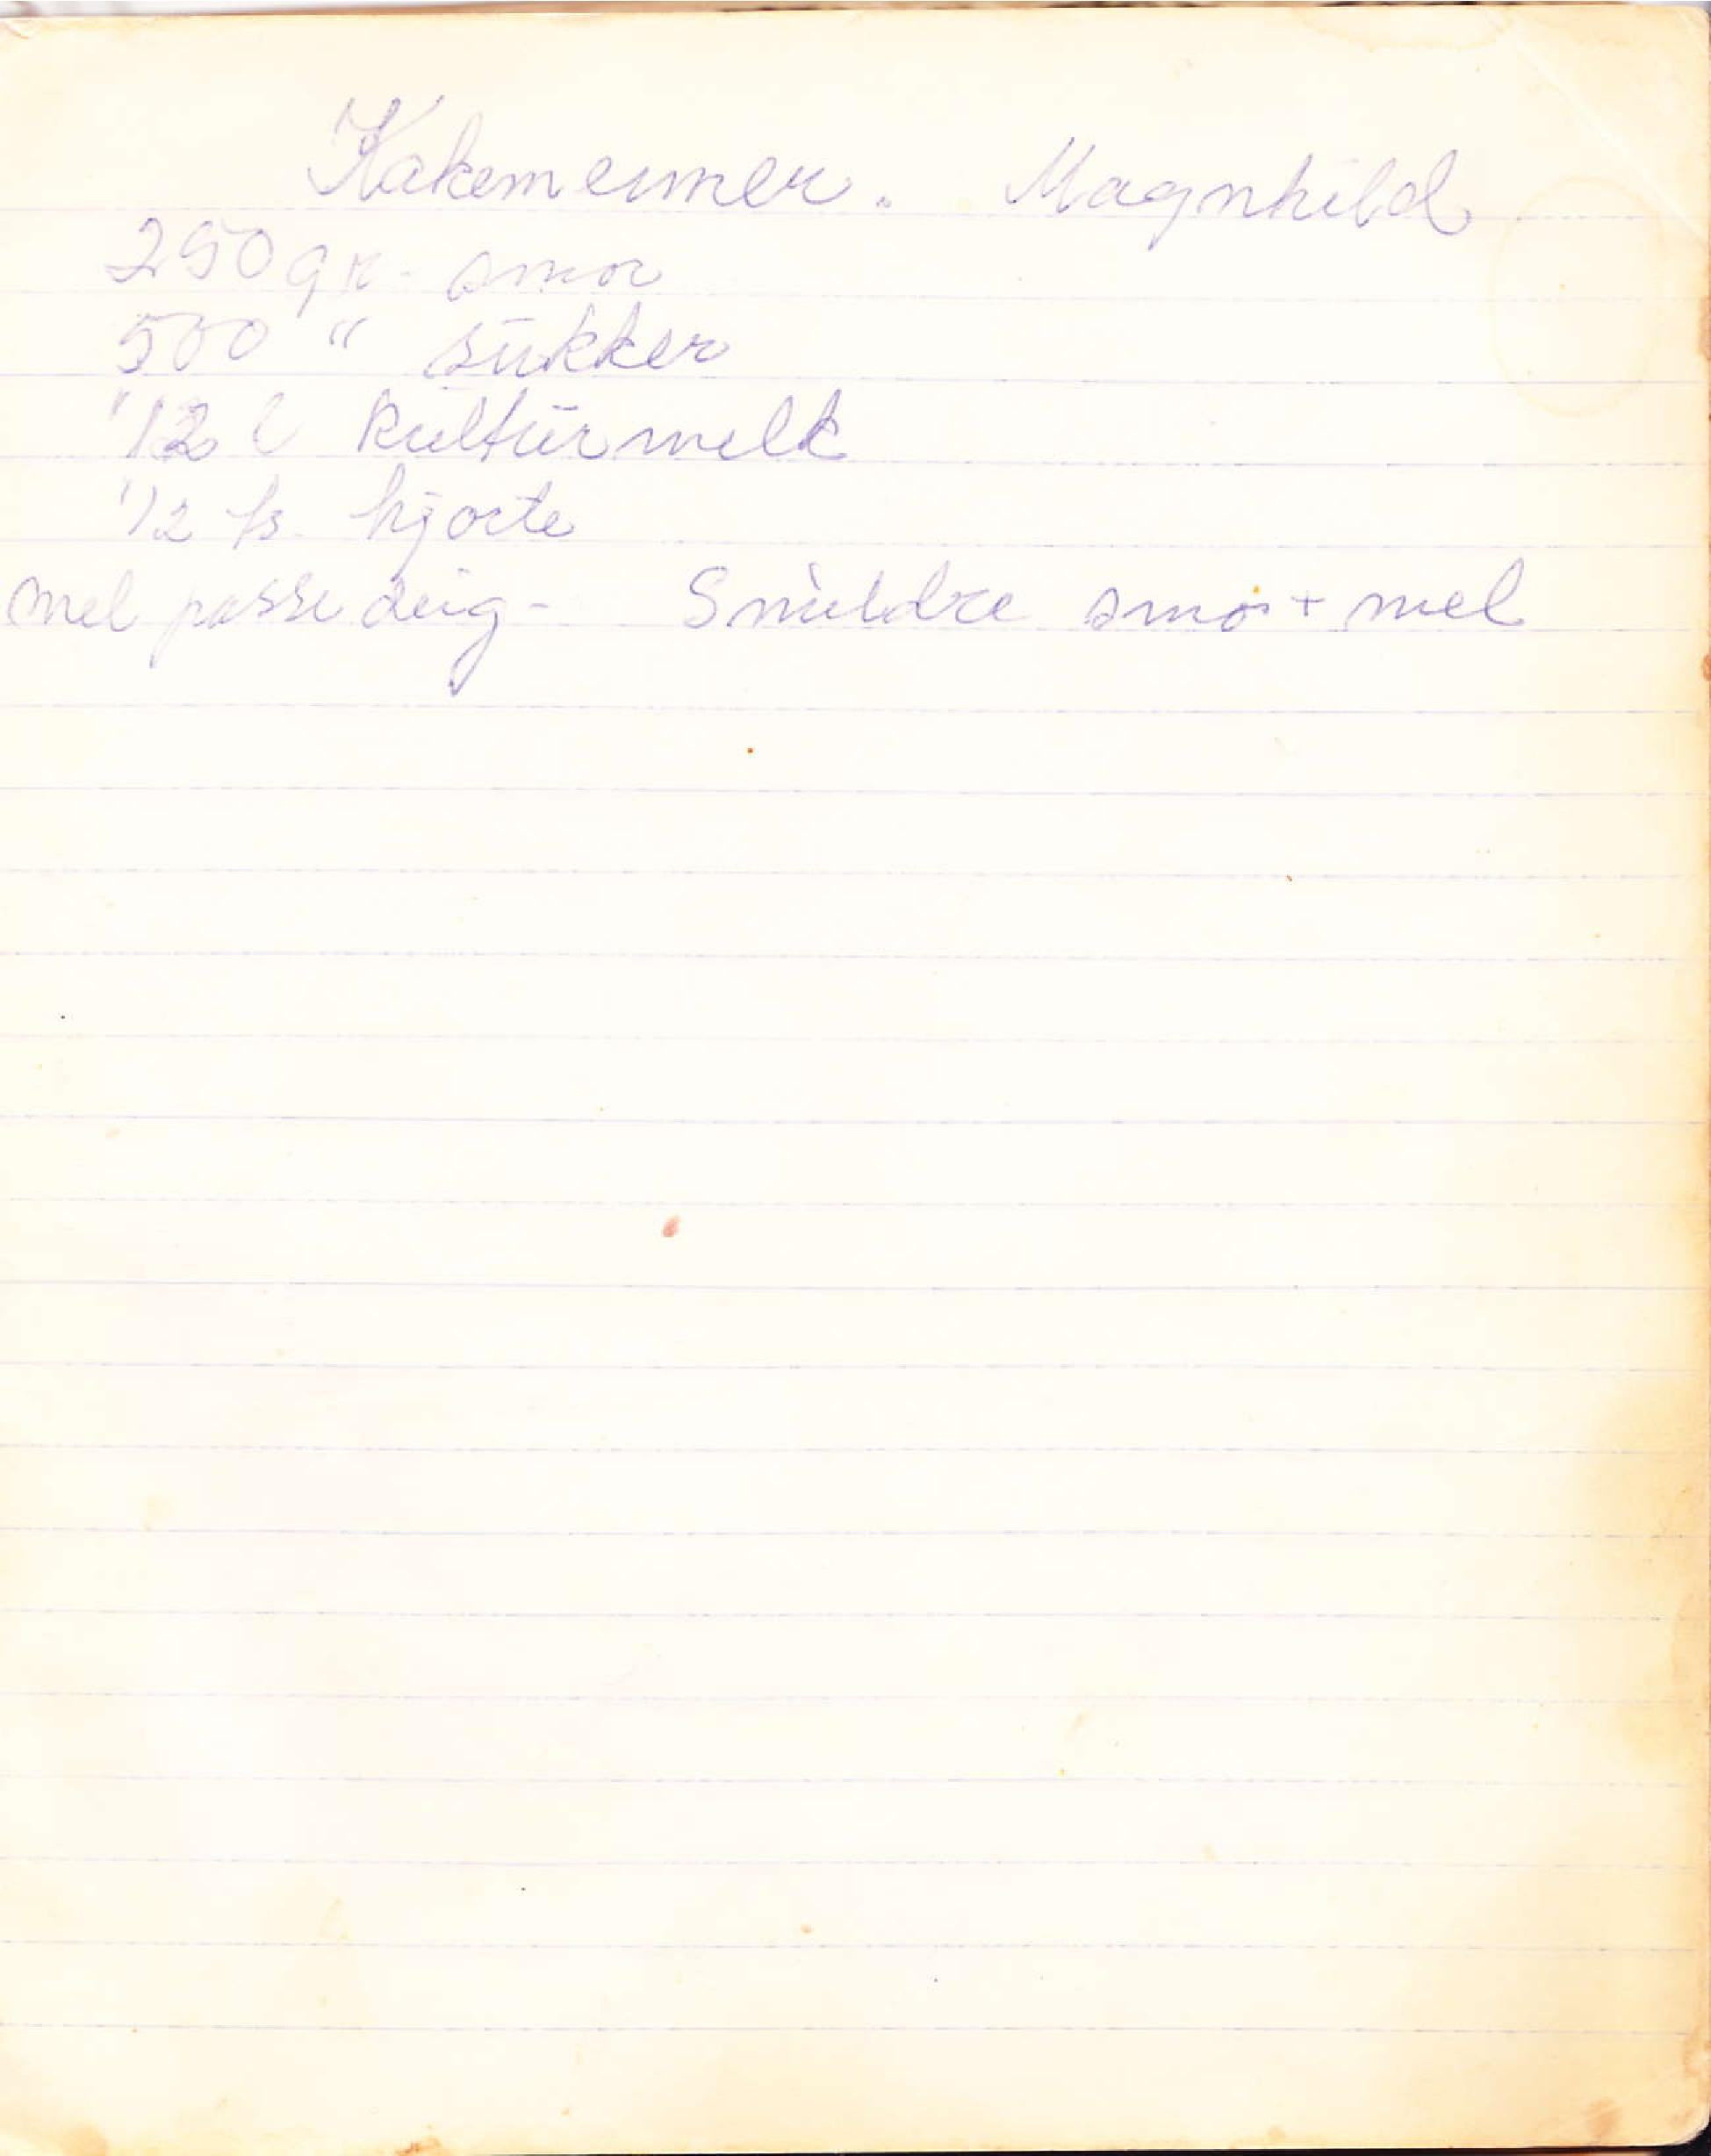 Kakemenner. Magnhild
250 gr. smør
500 " sukker
1/2 l kulturmelk
1/2 ts. hjorte
mel passe deig - Smuldre smør + mel